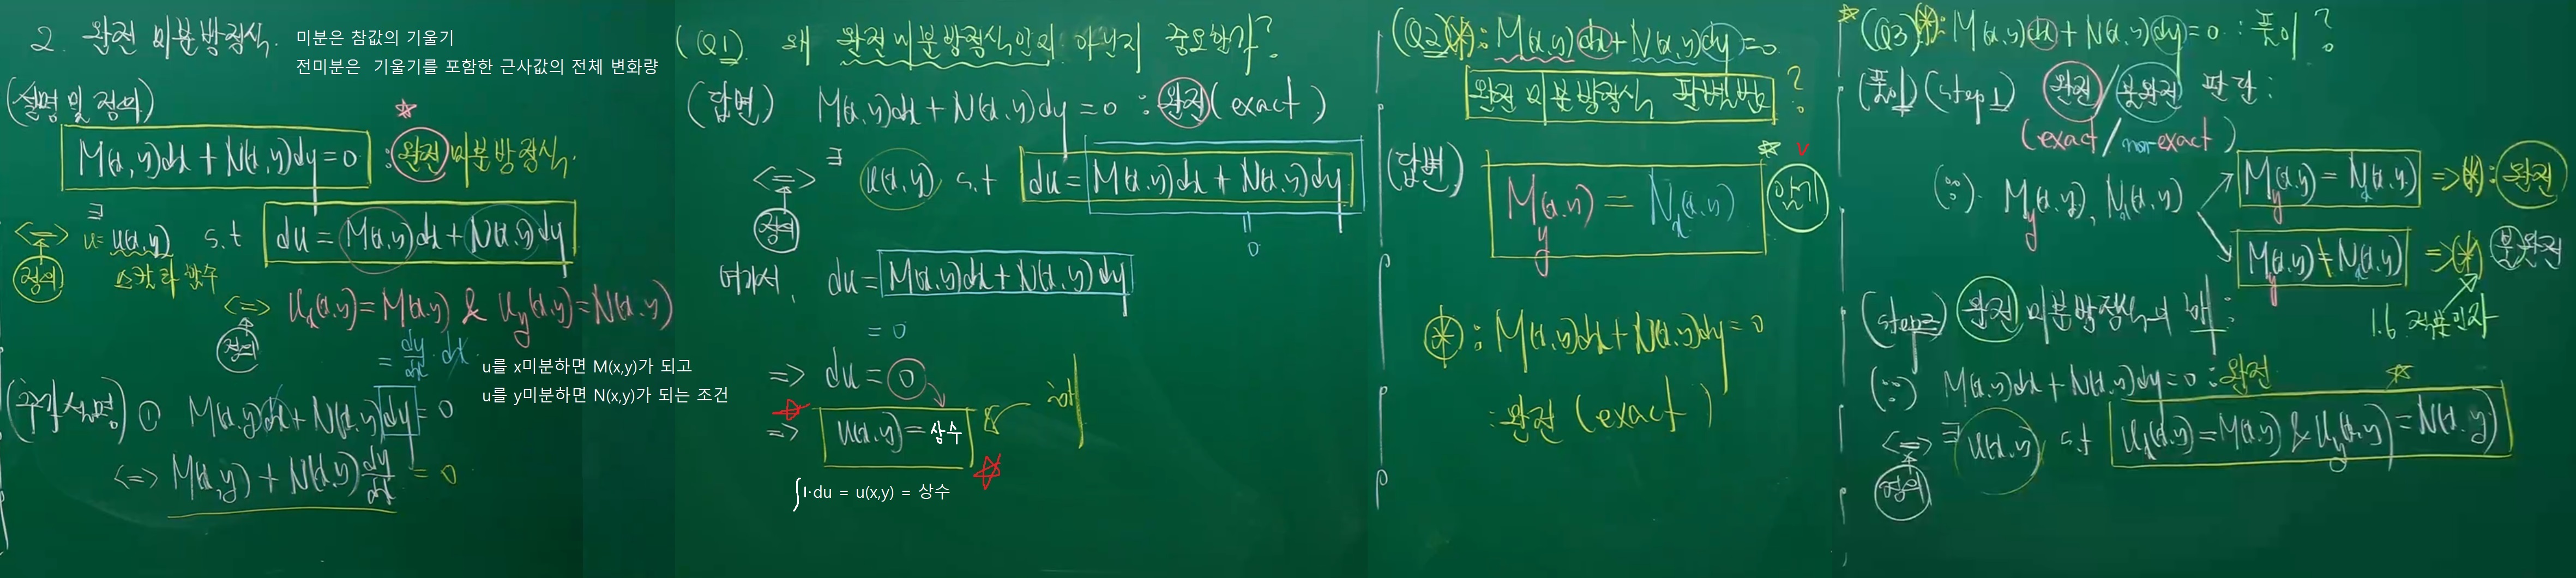 2. 완전 미분방정식.
미분은 참값의 기울기
전미분은 기울기를 포함한 근사값의 전체 변화량
(설명 및 정의)
M(x,y)dx + N(x,y)dy = 0 : 완전 미분방정식.
<=> ∃ u = u(x,y) s.t du = M(x,y)dx + N(x,y)dy
정의
스칼라 함수
<=> u_x(x,y) = M(x,y) & u_y(x,y) = N(x,y)
정의
= dy/dx · dx
u를 x미분하면 M(x,y)가 되고
u를 y미분하면 N(x,y)가 되는 조건
(추가설명) ① M(x,y)dx + N(x,y)dy = 0
<=> M(x,y) + N(x,y) dy/dx = 0
(Q1) 왜 완전미분방정식인지 아닌지 중요한가?
(답변) M(x,y)dx + N(x,y)dy = 0 : 완전(exact)
<=> ∃ u(x,y) s.t du = M(x,y)dx + N(x,y)dy
정의
= 0
여기서, du = M(x,y)dx + N(x,y)dy
= 0
=> du = 0
=> u(x,y) = 상수 해
∫1·du = u(x,y) = 상수
(Q2) (*) : M(x,y)dx + N(x,y)dy = 0
완전 미분방정식 판별법?
(답변) M_y(x,y) = N_x(x,y) 암기
(*) : M(x,y)dx + N(x,y)dy = 0
: 완전 (exact)
(Q3) (*) : M(x,y)dx + N(x,y)dy = 0 : 풀이?
(풀이) (step1) 완전/불완전 판단 :
(exact/non-exact)
(∵) M_y(x,y), N_x(x,y)
M_y(x,y) = N_x(x,y) => (*) : 완전
M_y(x,y) ≠ N_x(x,y) => (*) 불완전
1.6 적분인자
(step2) 완전 미분방정식의 해 :
(∵) M(x,y)dx + N(x,y)dy = 0 : 완전
<=> ∃ u(x,y) s.t u_x(x,y) = M(x,y) & u_y(x,y) = N(x,y)
정의